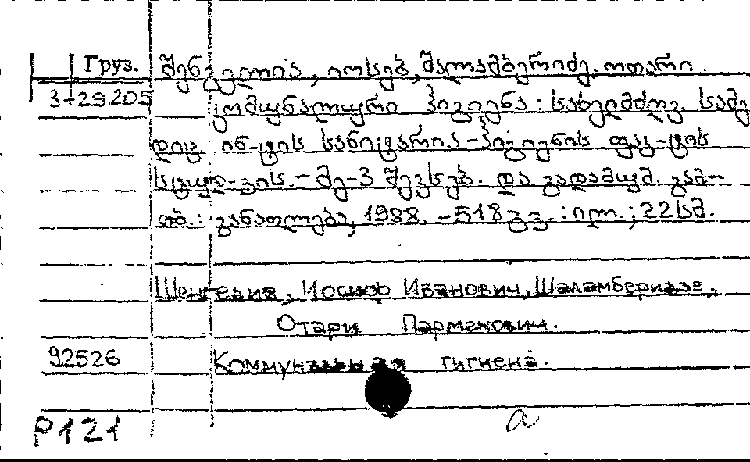 Груз. შენგელია, იოსებ, შალამბერიძე, ოთარი.
3-29205 კომუნალური ჰიგიენა: სახელმძღვ. სამე
დიც. ინ-ტის სანიტარია-ჰიგიენის ფაკ-ტის
სტუდ-ტის. - მე-3 შევსებ. და გადამუშ. გამ-
თბ.: განათლება, 1988. - 518 გვ.: ილ.; 22 სმ.
Шенгелия, Иосиф Иванович, Шаламберидзе,
Отари Парменович.
92526 Коммунальная гигиена.
P121 a